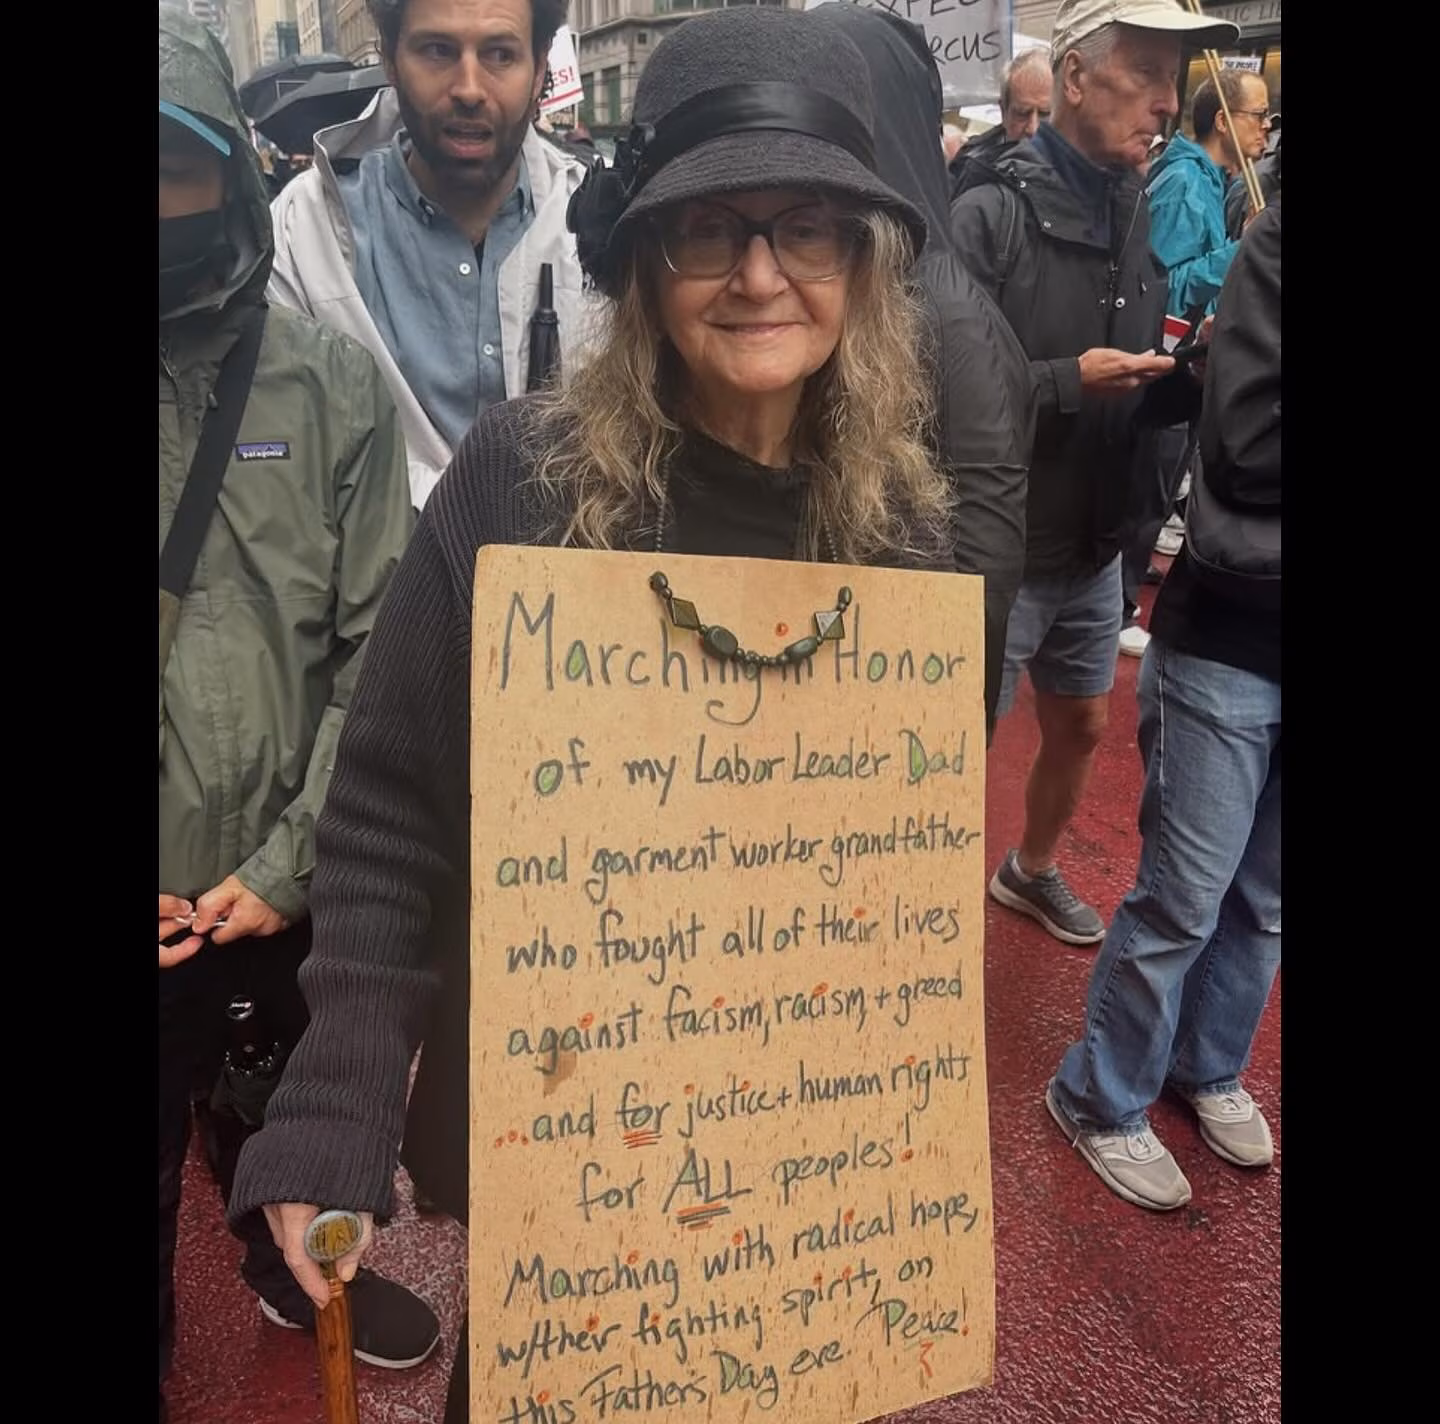 EXPEC
RCUS
IC LI
ES!
patagonia
Marching in Honor
of my Labor Leader Dad
and garment worker grandfather
who fought all of their lives
against facism, racism, + greed
...and for justice + human rights
for ALL peoples!
Marching with radical hope,
w/their fighting spirit, on
this Fathers Day eve. Peace!